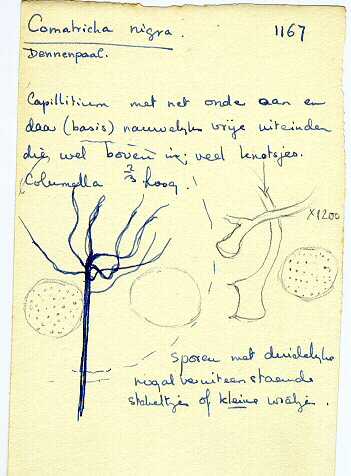 Comatricha nigra. 1167
Dennenpaal.
Capillitium met net onde aan en
daar (basis) nauwelijks vrije uiteinden
die wel boven in; veel knotsjes.
Columella 2/3 hoog.
x1200
sporen met duidelijke
nogal veruiteenstaande
stekeltjes of kleine wratjes.